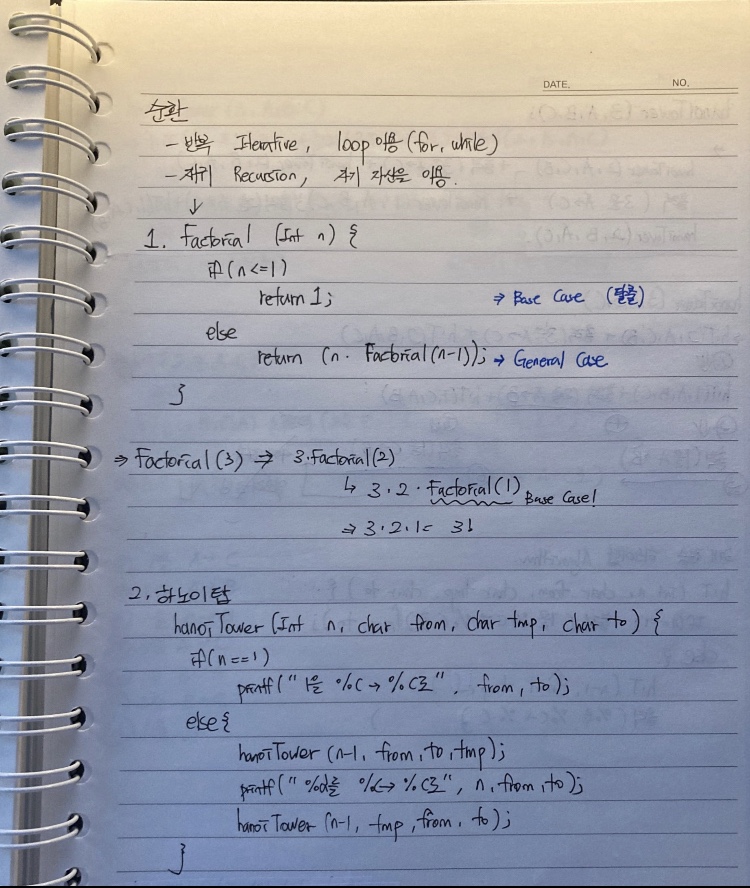 DATE. NO.
순환
- 반복 Iterative, loop 이용 (for, while)
- 재귀 Recursion, 자기 자신을 이용.
↓
1. Factorial (Int n) {
if(n<=1)
return 1; ⇒ Base Case (탈출)
else
return (n · Factorial(n-1)); → General Case
}
⇒ Factorial(3) ⇒ 3·Factorial(2)
↳ 3·2·Factorial(1) Base Case!
⇒ 3·2·1 = 3!
2. 하노이탑
hanoiTower (Int n, char from, char tmp, char to) {
if(n==1)
printf(" 1을 %c → %c로", from, to);
else {
hanoiTower (n-1, from, to, tmp);
printf(" %d를 %c→%c로", n, from, to);
hanoiTower (n-1, tmp, from, to);
}